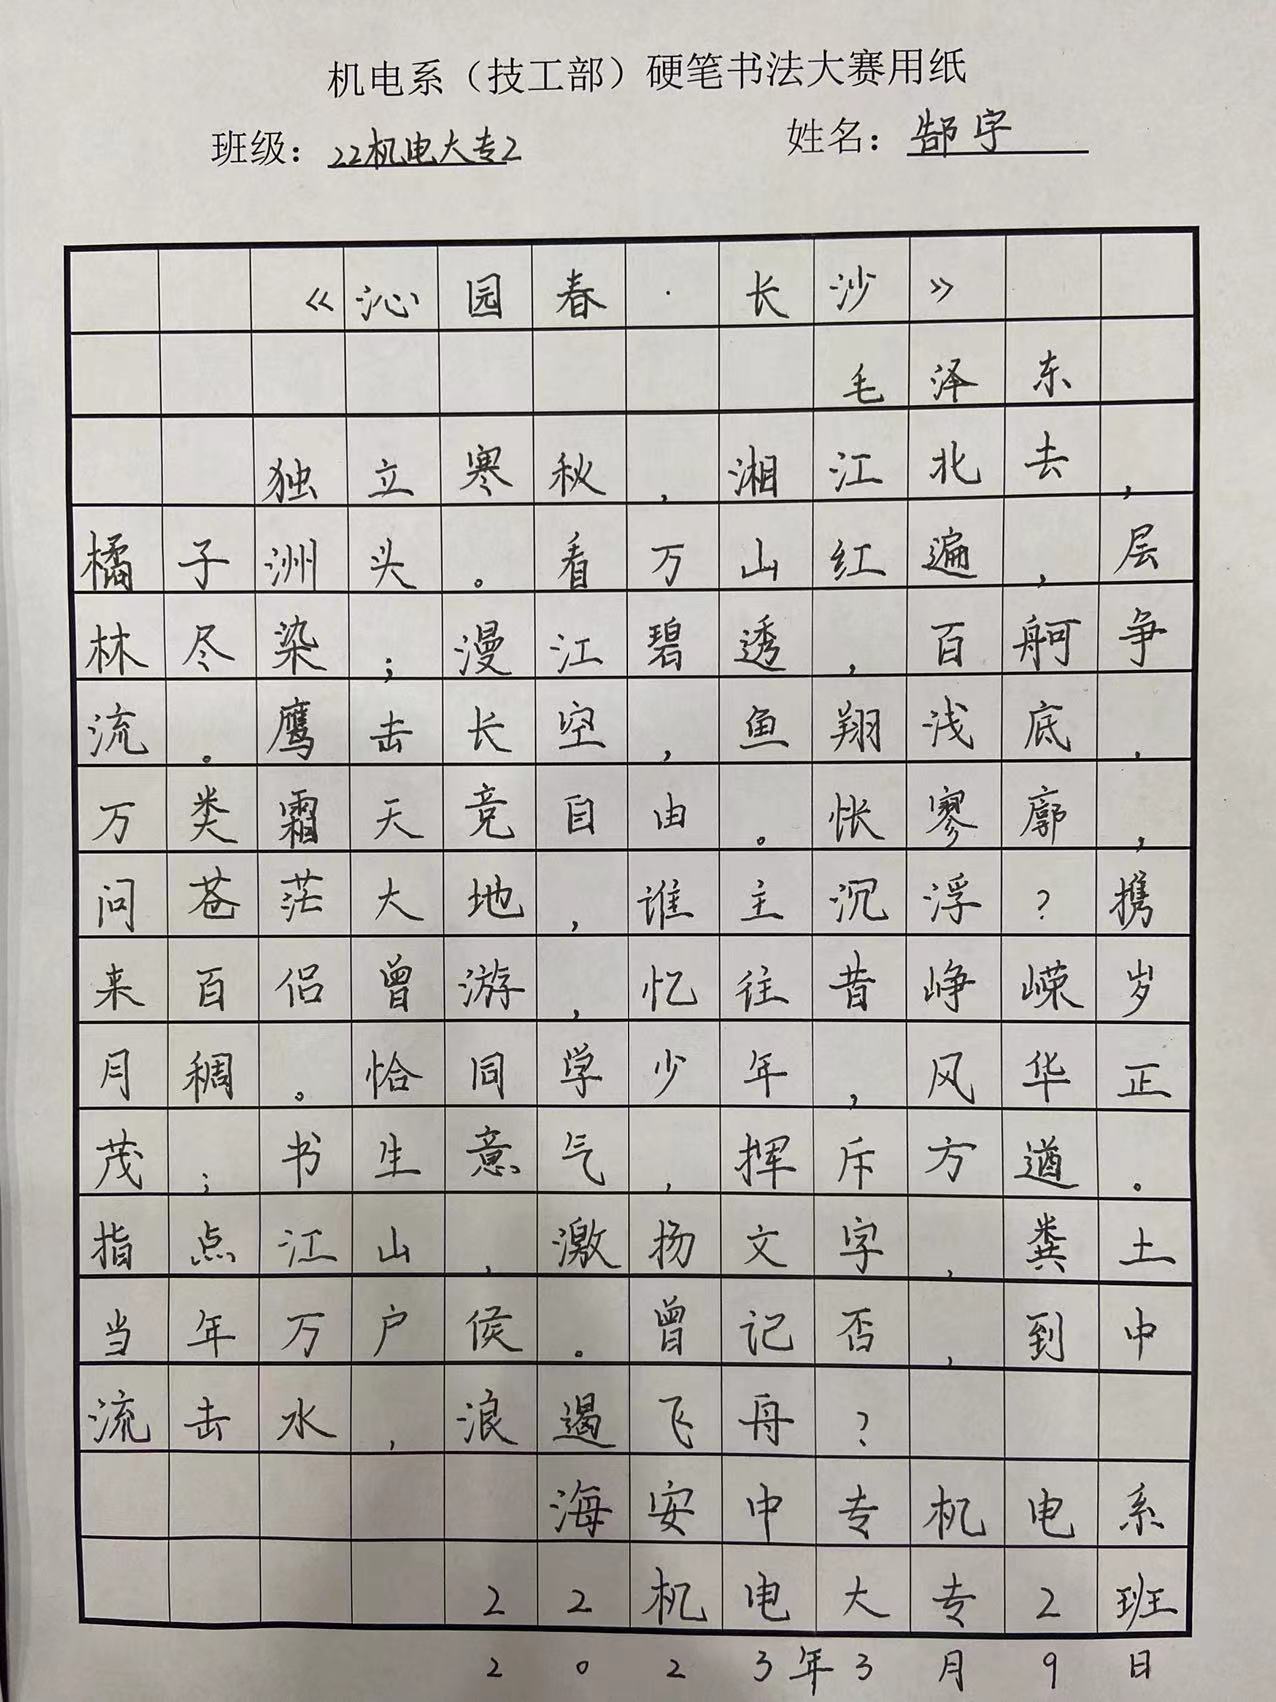 机电系（技工部）硬笔书法大赛用纸
班级：22机电大专2 姓名：郜宇
《沁园春·长沙》
毛泽东
独立寒秋，湘江北去，
橘子洲头。看万山红遍，层
林尽染；漫江碧透，百舸争
流。鹰击长空，鱼翔浅底，
万类霜天竞自由。怅寥廓，
问苍茫大地，谁主沉浮？携
来百侣曾游，忆往昔峥嵘岁
月稠。恰同学少年，风华正
茂；书生意气，挥斥方遒。
指点江山，激扬文字，粪土
当年万户侯。曾记否，到中
流击水，浪遏飞舟？
海安中专机电系
22机电大专2班
2023年3月9日